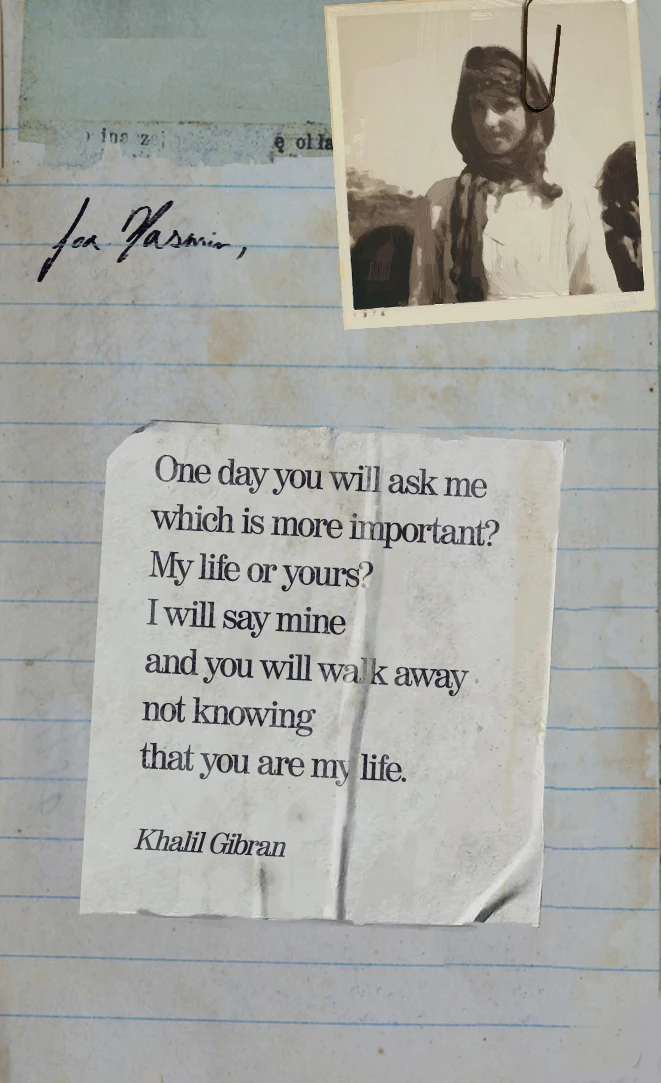 for Yasmin,
One day you will ask me
which is more important?
My life or yours?
I will say mine
and you will walk away
not knowing
that you are my life.
Khalil Gibran